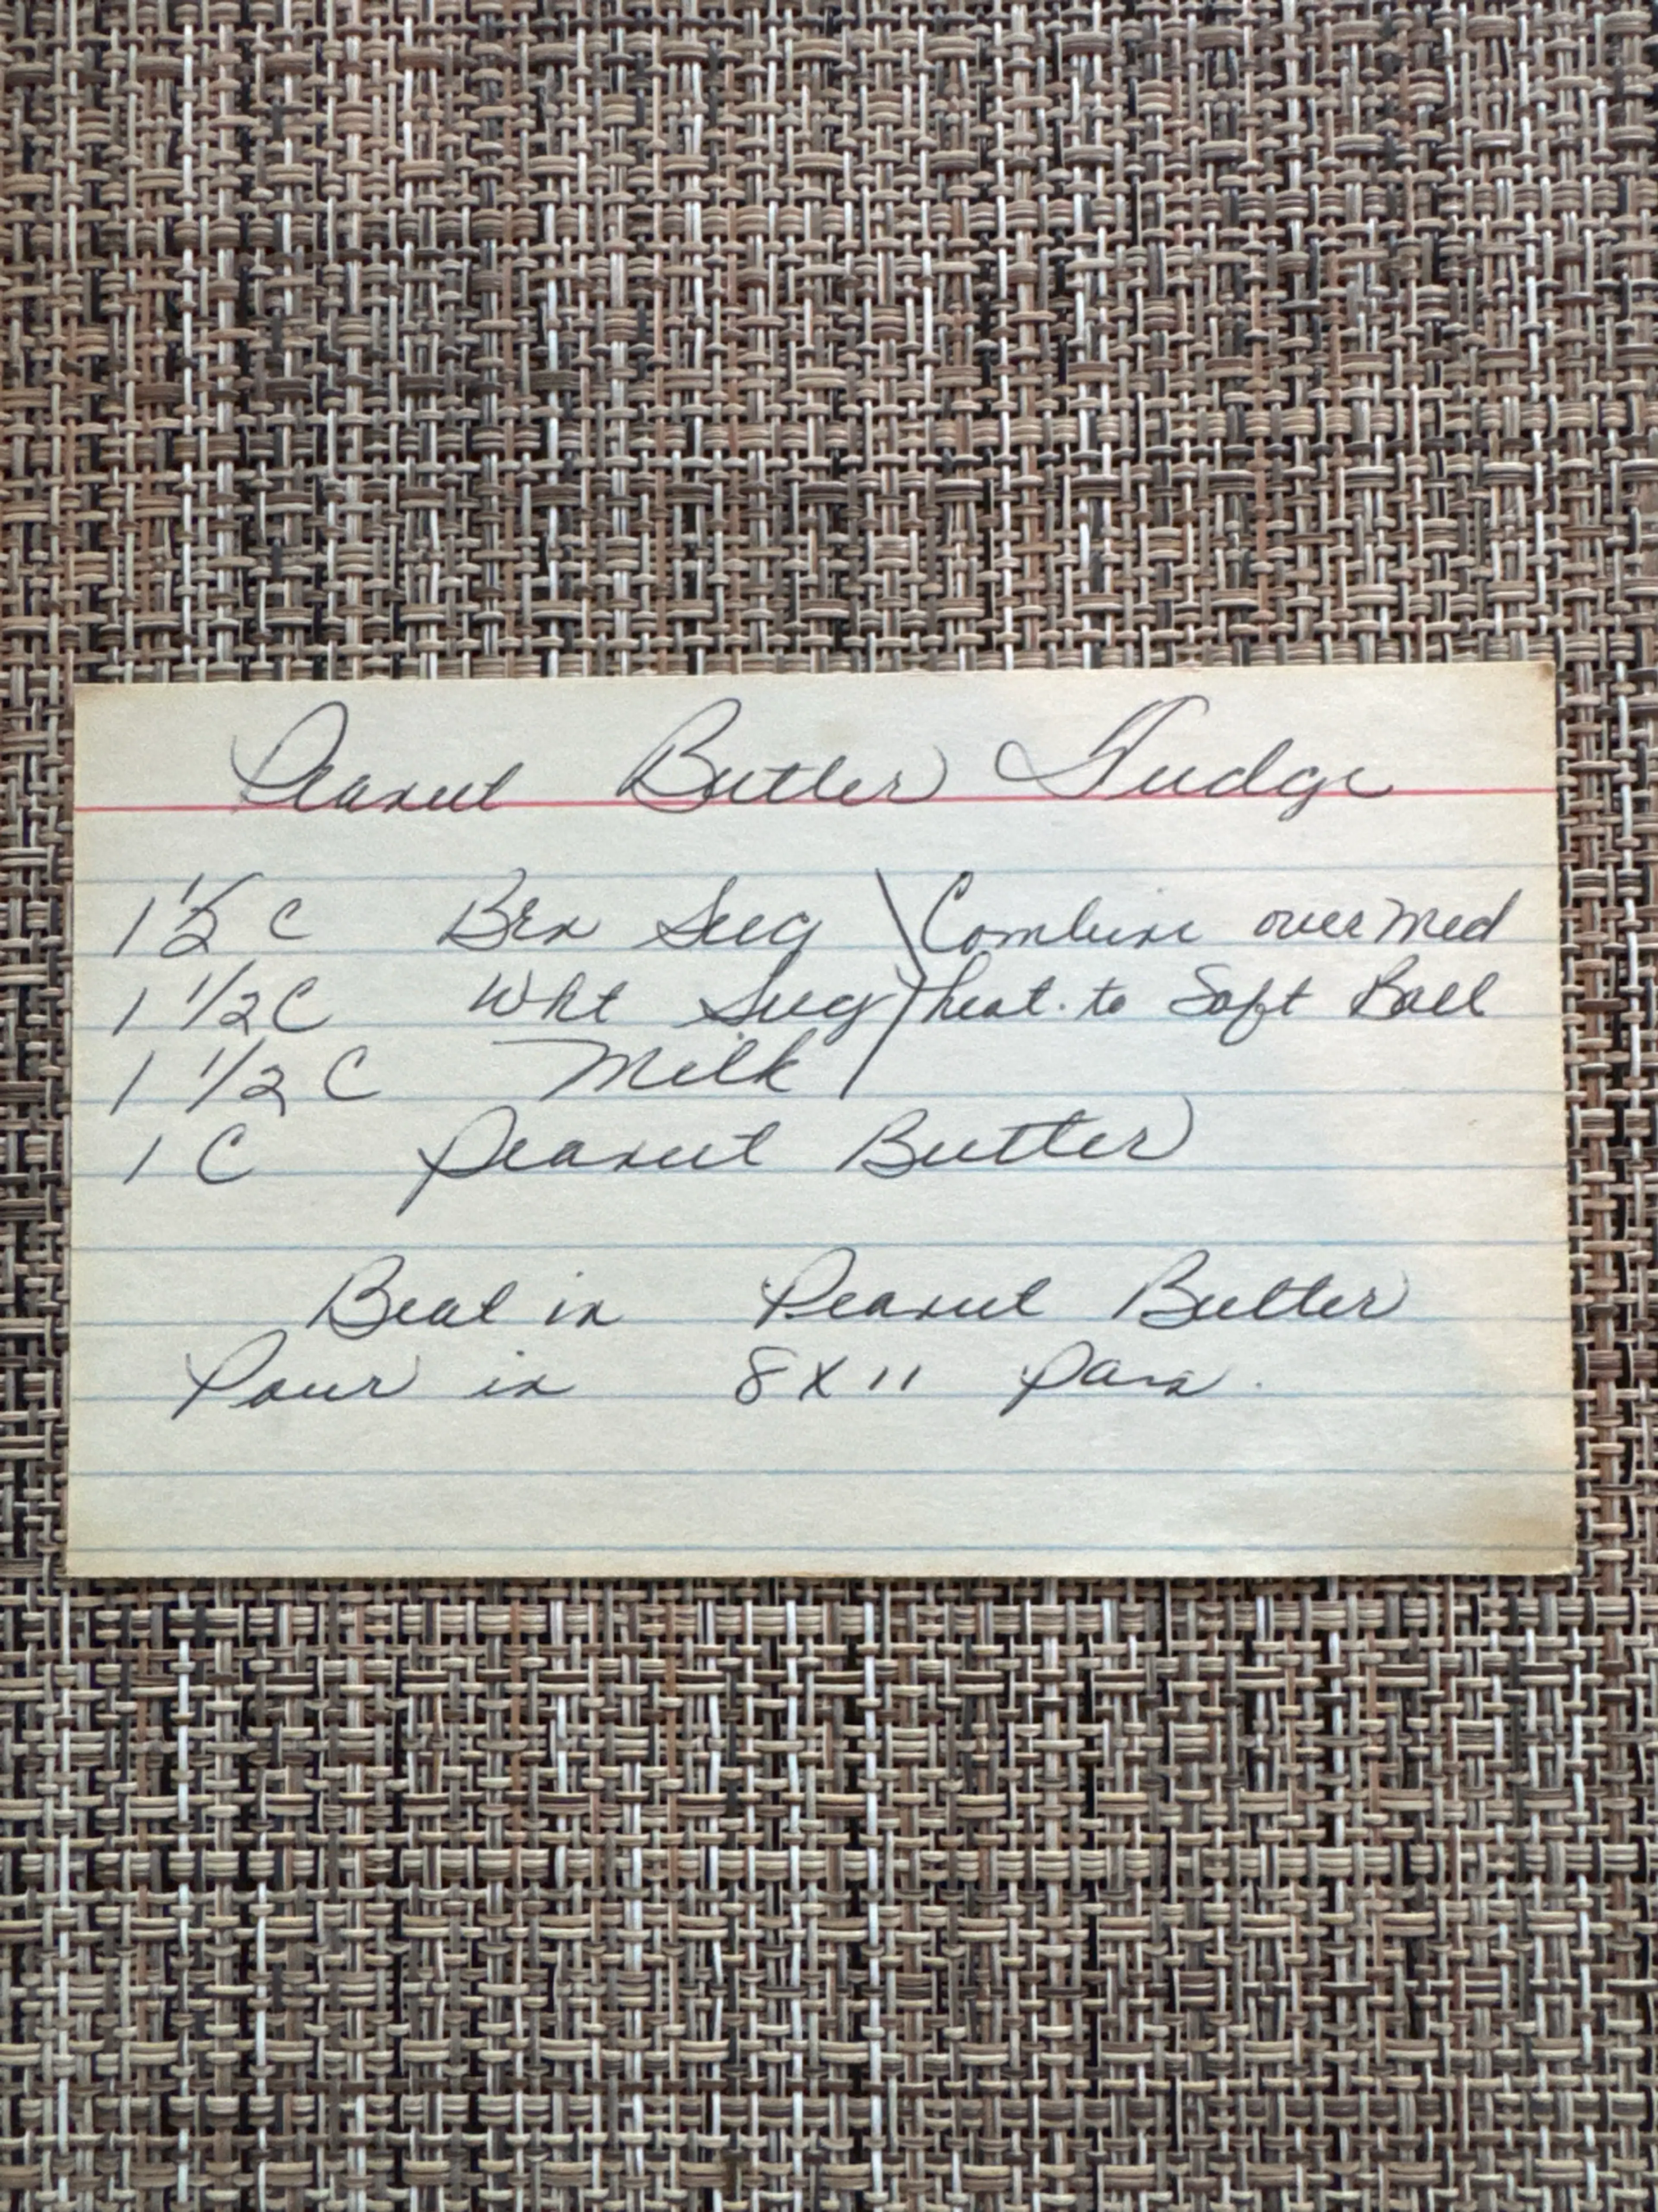 Peanut Butter Fudge
1 1/2 C Brn Sug Combine over med
1 1/2 C Wht Sug heat. to Soft Ball
1 1/2 C Milk
1 C Peanut Butter
Beat in Peanut Butter
Pour in 8 X 11 Pan.